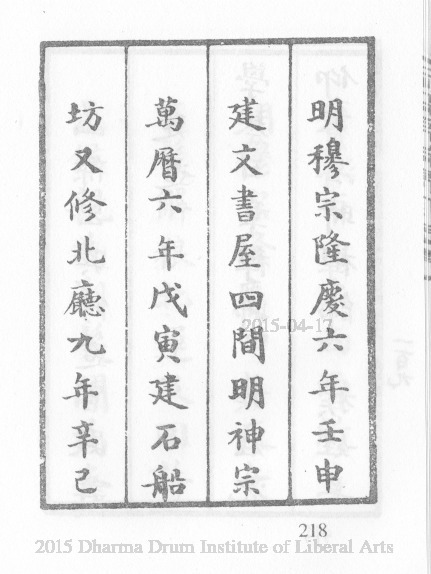 明穆宗隆慶六年壬申
建文書屋四間明神宗
萬曆六年戊寅建石船
坊又修北廳九年辛己
218
2015-04-17
2015 Dharma Drum Institute of Liberal Arts